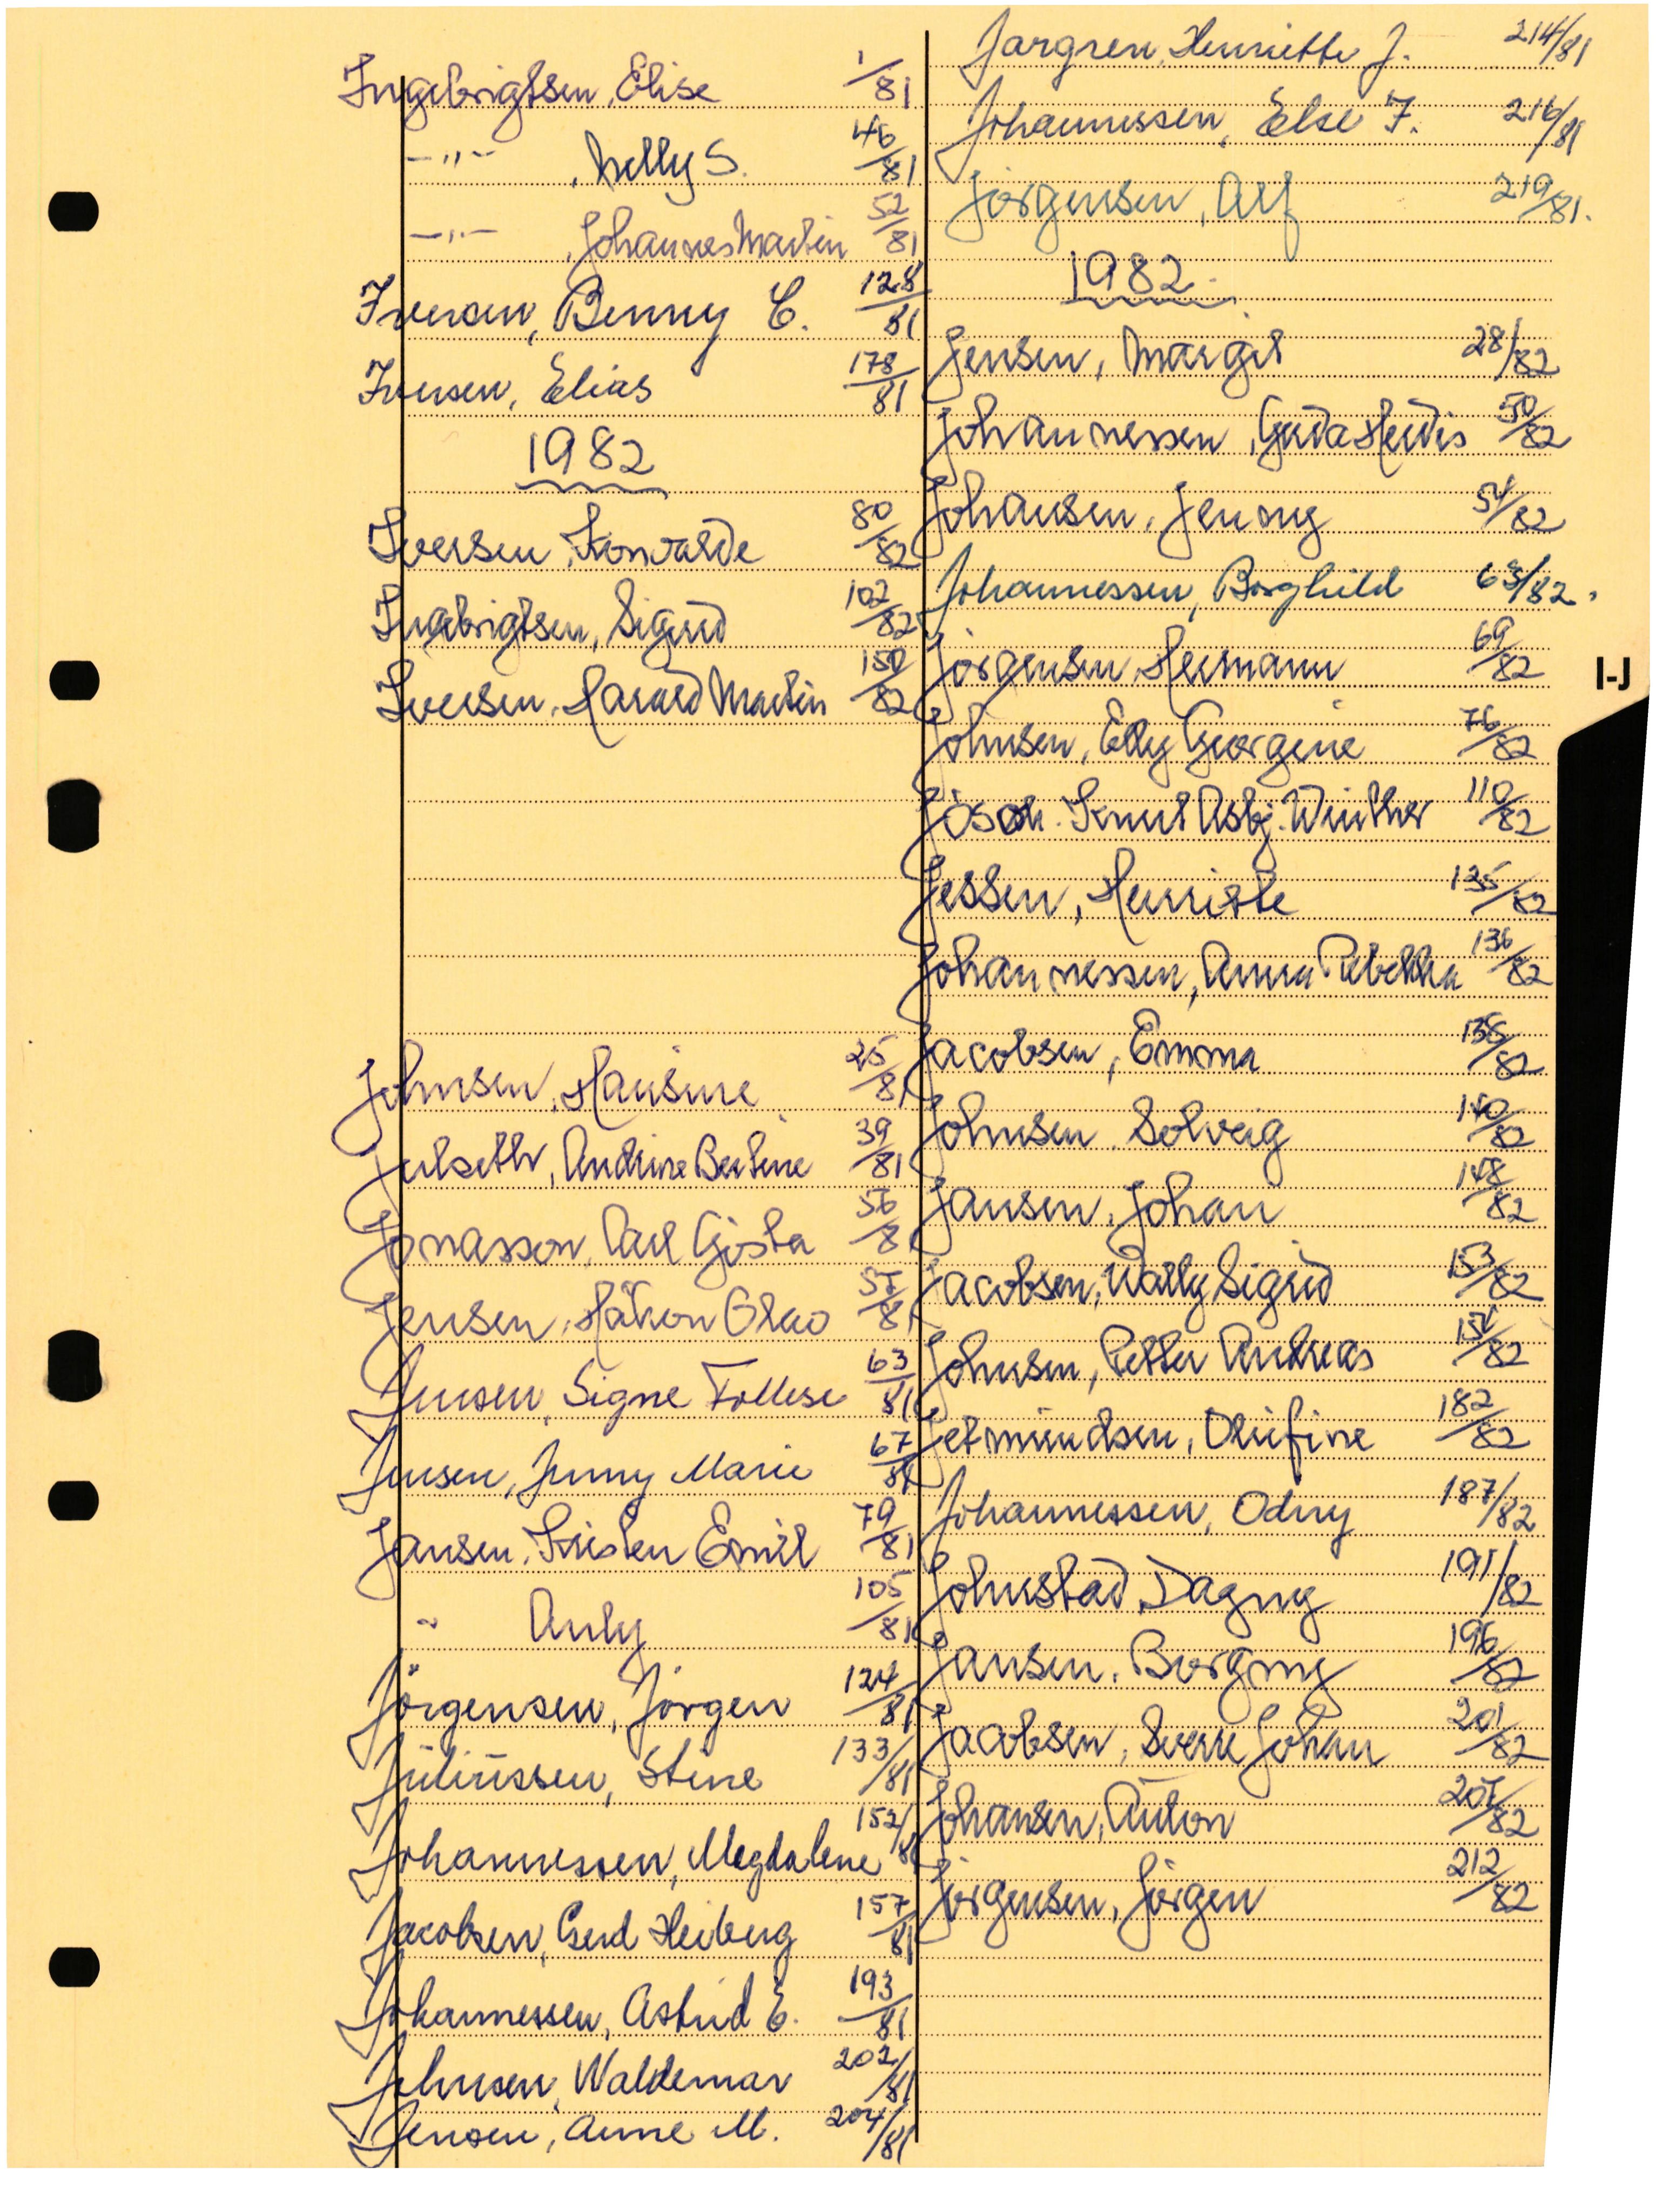 Ingebrigtsen, Elise 1/81
—"— , Nelly S. 46/81
—"— , Johannes Martin 52/81
Iversen, Benny C. 128/81
Iversen, Elias 178/81
1982
Iversen, Konvalde 80/82
Ingebrigtsen, Sigrid 102/82
Iversen, Harald Martin 150/82
Johnsen, Hansine 25/81
Julseth, Andrine Bertine 39/81
Jonasson, Carl Gösta 56/81
Jensen, Håkon Olao 57/81
Jensen, Signe Follese 63/81
Jensen, Jenny Marie 67/81
Jansen, Kristen Emil 79/81
" Anly 105/81
Jörgensen, Jörgen 124/81
Juliussen, Stine 133/81
Johannessen, Magdalene 152/81
Jacobsen, Gerd Heiberg 157/81
Johannessen, Astrid E. 193/81
Johnsen, Waldemar 202/81
Jensen, Anne M. 204/81
Jørgren, Henriette J. 214/81
Johannessen, Else F. 216/81
Jörgensen, Alf 219/81.
1982.
Jensen, Margit 28/82
Johannessen, Gerda Herdis 50/82
Johansen, Jenny 54/82
Johannessen, Borghild 63/82.
Jörgensen, Hermann 69/82
Johnsen, Elly Georgine 76/82
Knut Asbj. Winther 110/82
Jessen, Henriette 135/82
Johannessen, Anna Rebekka 136/82
Jacobsen, Emma 138/82
Johnsen Solveig 140/82
Jansen, Johan 148/82
Jacobsen, Wally Sigrid 153/82
Johnsen, Petter Andreas 154/82
Jetmundsen, Olufine 182/82
Johannessen, Odny 187/82
Johnstad, Dagny 191/82
Jansen, Borgny 196/82
Jacobsen, Sverre Johan 201/82
Johansen, Anton 207/82
Jörgensen, Jörgen 212/82
I-J